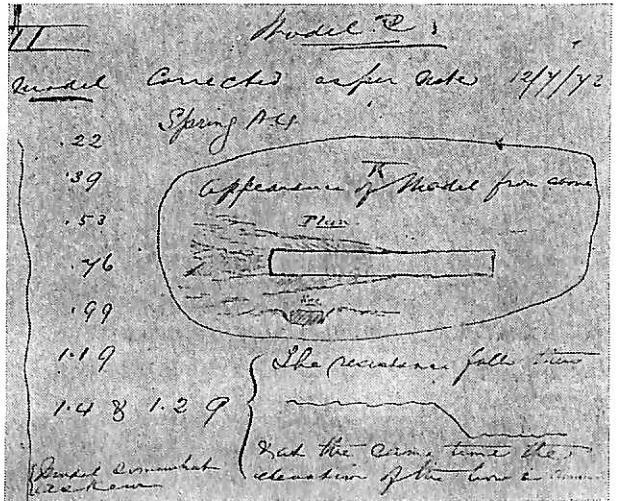 11
Model
Model Corrected as per note 12/7/72
Spring
.22
.39
.53
.76
.99
1.19
1.48 1.29
Appearance of Model from above
Plan
The resistance falls
& at the same time the
elevation of the bow is
somewhat
askew